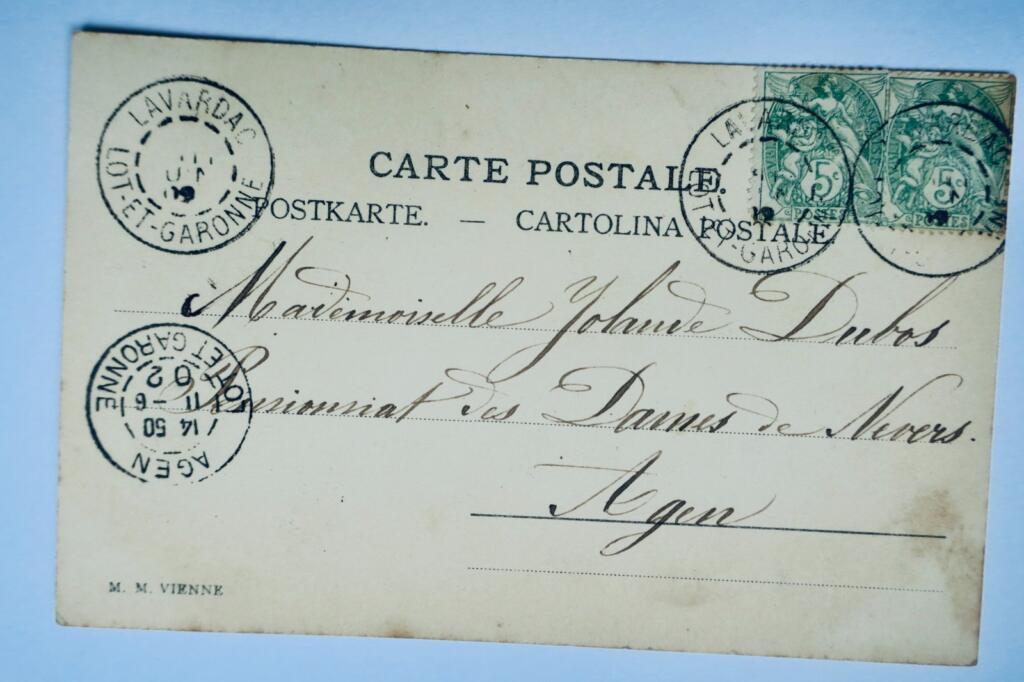 LAVARDAC
LOT-ET-GARONNE
CARTE POSTALE.
POSTKARTE. — CARTOLINA POSTALE
5c
POSTES
5c
POSTES
LOT-ET-GARONNE
Mademoiselle Yolande Dubos
Pensionnat des Dames de Nevers.
Agen
AGEN
14 50
11 - 6
02
LOT ET GARONNE
M. M. VIENNE